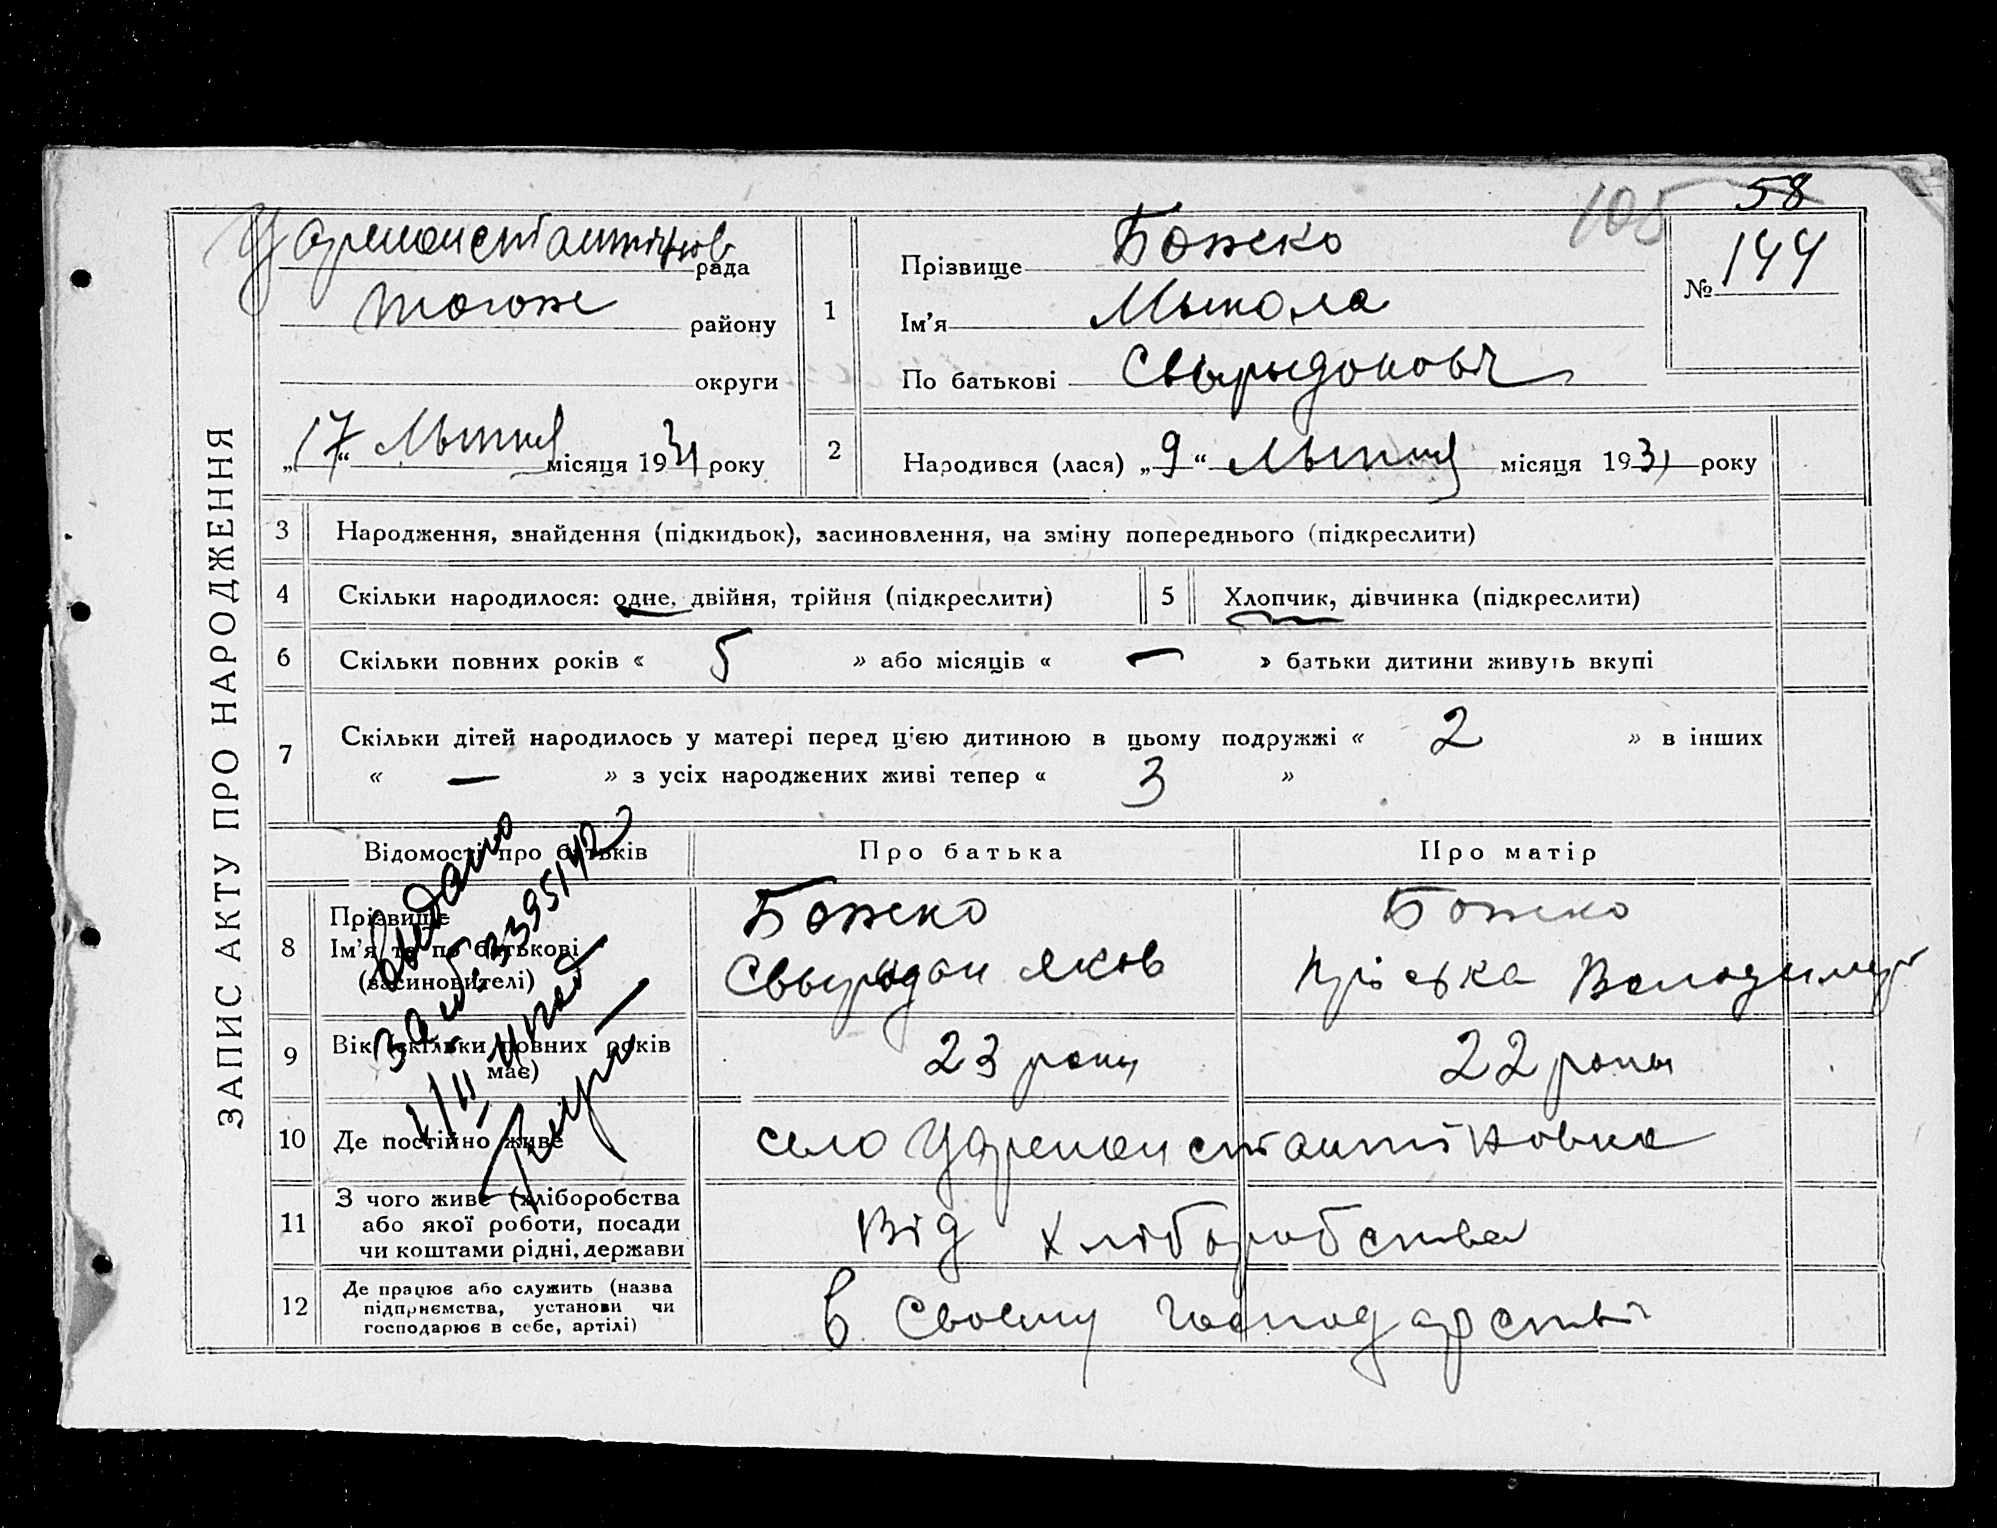 58
105
Цареконстантинов рада
тогож району
округи
„17“ Лыпня місяця 1931 року
1
Прізвище Божко
Ім'я Мыкола
По батькові Свырыдоновч
№ 144
2
Народився (лася) „9“ Лыпня місяця 1931 року
ЗАПИС АКТУ ПРО НАРОДЖЕННЯ
3 Народження, знайдення (підкидьок), засиновлення, на зміну попереднього (підкреслити)
4 Скільки народилося: одне, двійня, трійня (підкреслити)
5 Хлопчик, дівчинка (підкреслити)
6 Скільки повних років « 5 » або місяців « — » батьки дитини живуть вкупі
7 Скільки дітей народилось у матері перед цією дитиною в цьому подружжі « 2 » в інших
« — » з усіх народжених живі тепер « 3 »
Відомості про батьків
Про батька
Про матір
8 Прізвище
Ім'я та по батькові
(засиновителі)
Божко
Свырыдон Яков
Божко
Пріська Володимир
9 Вік (скільки повних років
має)
23 роки
22 роки
10 Де постійно живе
село Цареконстантіновка
11 З чого живе (хліборобства
або якої роботи, посади
чи коштами рідні, держави
Від хліборобства
12 Де працює або служить (назва
підприємства, установи чи
господарює в себе, артілі)
в своему господарстві
выдано
3395142